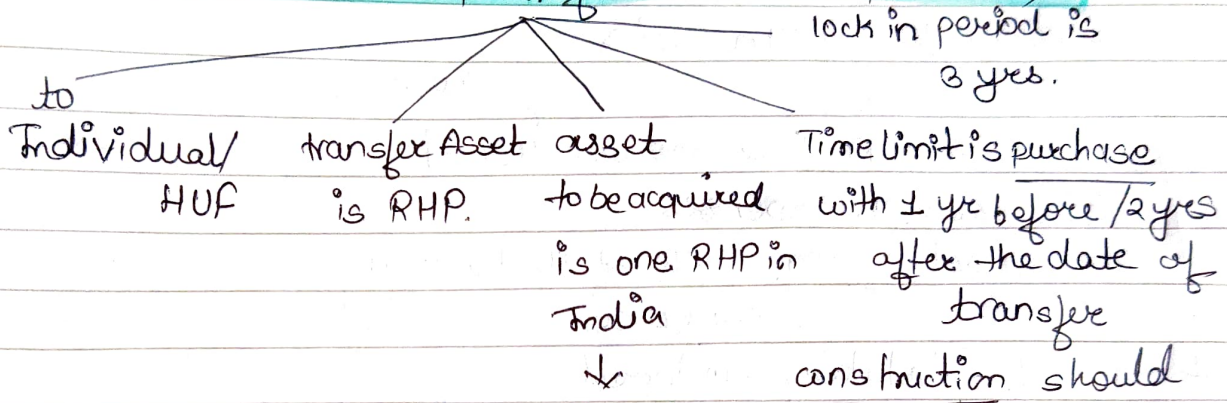 lock in period is
3 yrs.
to
Individual/
HUF
transfer Asset
is RHP.
asset
to be acquired
is one RHP in
India
↓
Time limit is purchase
with 1 yr before /2 yrs
after the date of
transfer
construction should